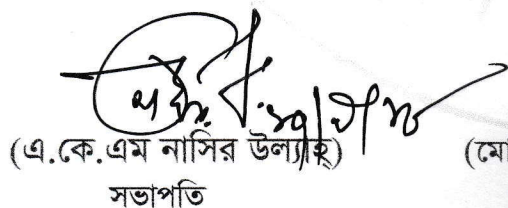 (এ.কে.এম নাসির উল্যাহ্) (মো
সভাপতি